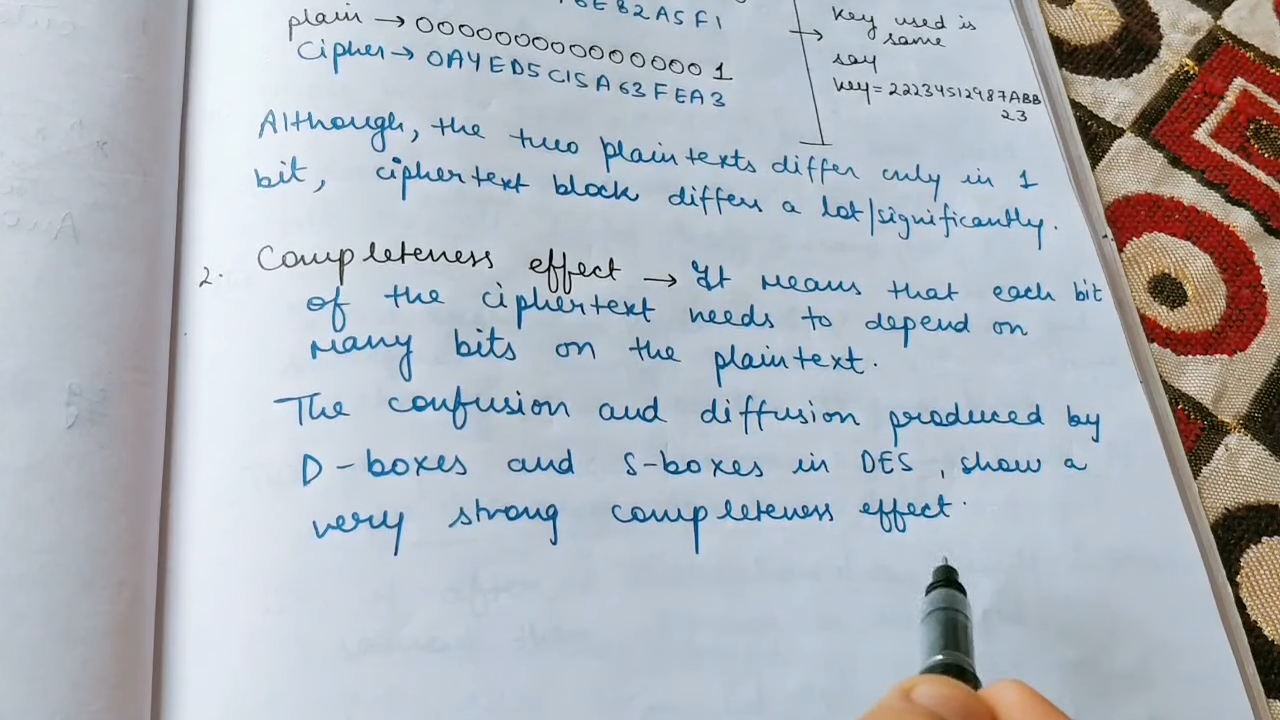 6EB2A5F1
plain → 0000000000000001
Cipher → 0A4ED5C15A63FEA3
key used is
same
say
key = 22234512987ABB
23
Although, the two plaintexts differ only in 1
bit, ciphertext block differs a lot/significantly.
2. Completeness effect → It means that each bit
of the ciphertext needs to depend on
many bits on the plaintext.
The confusion and diffusion produced by
D-boxes and S-boxes in DES, show a
very strong completeness effect.